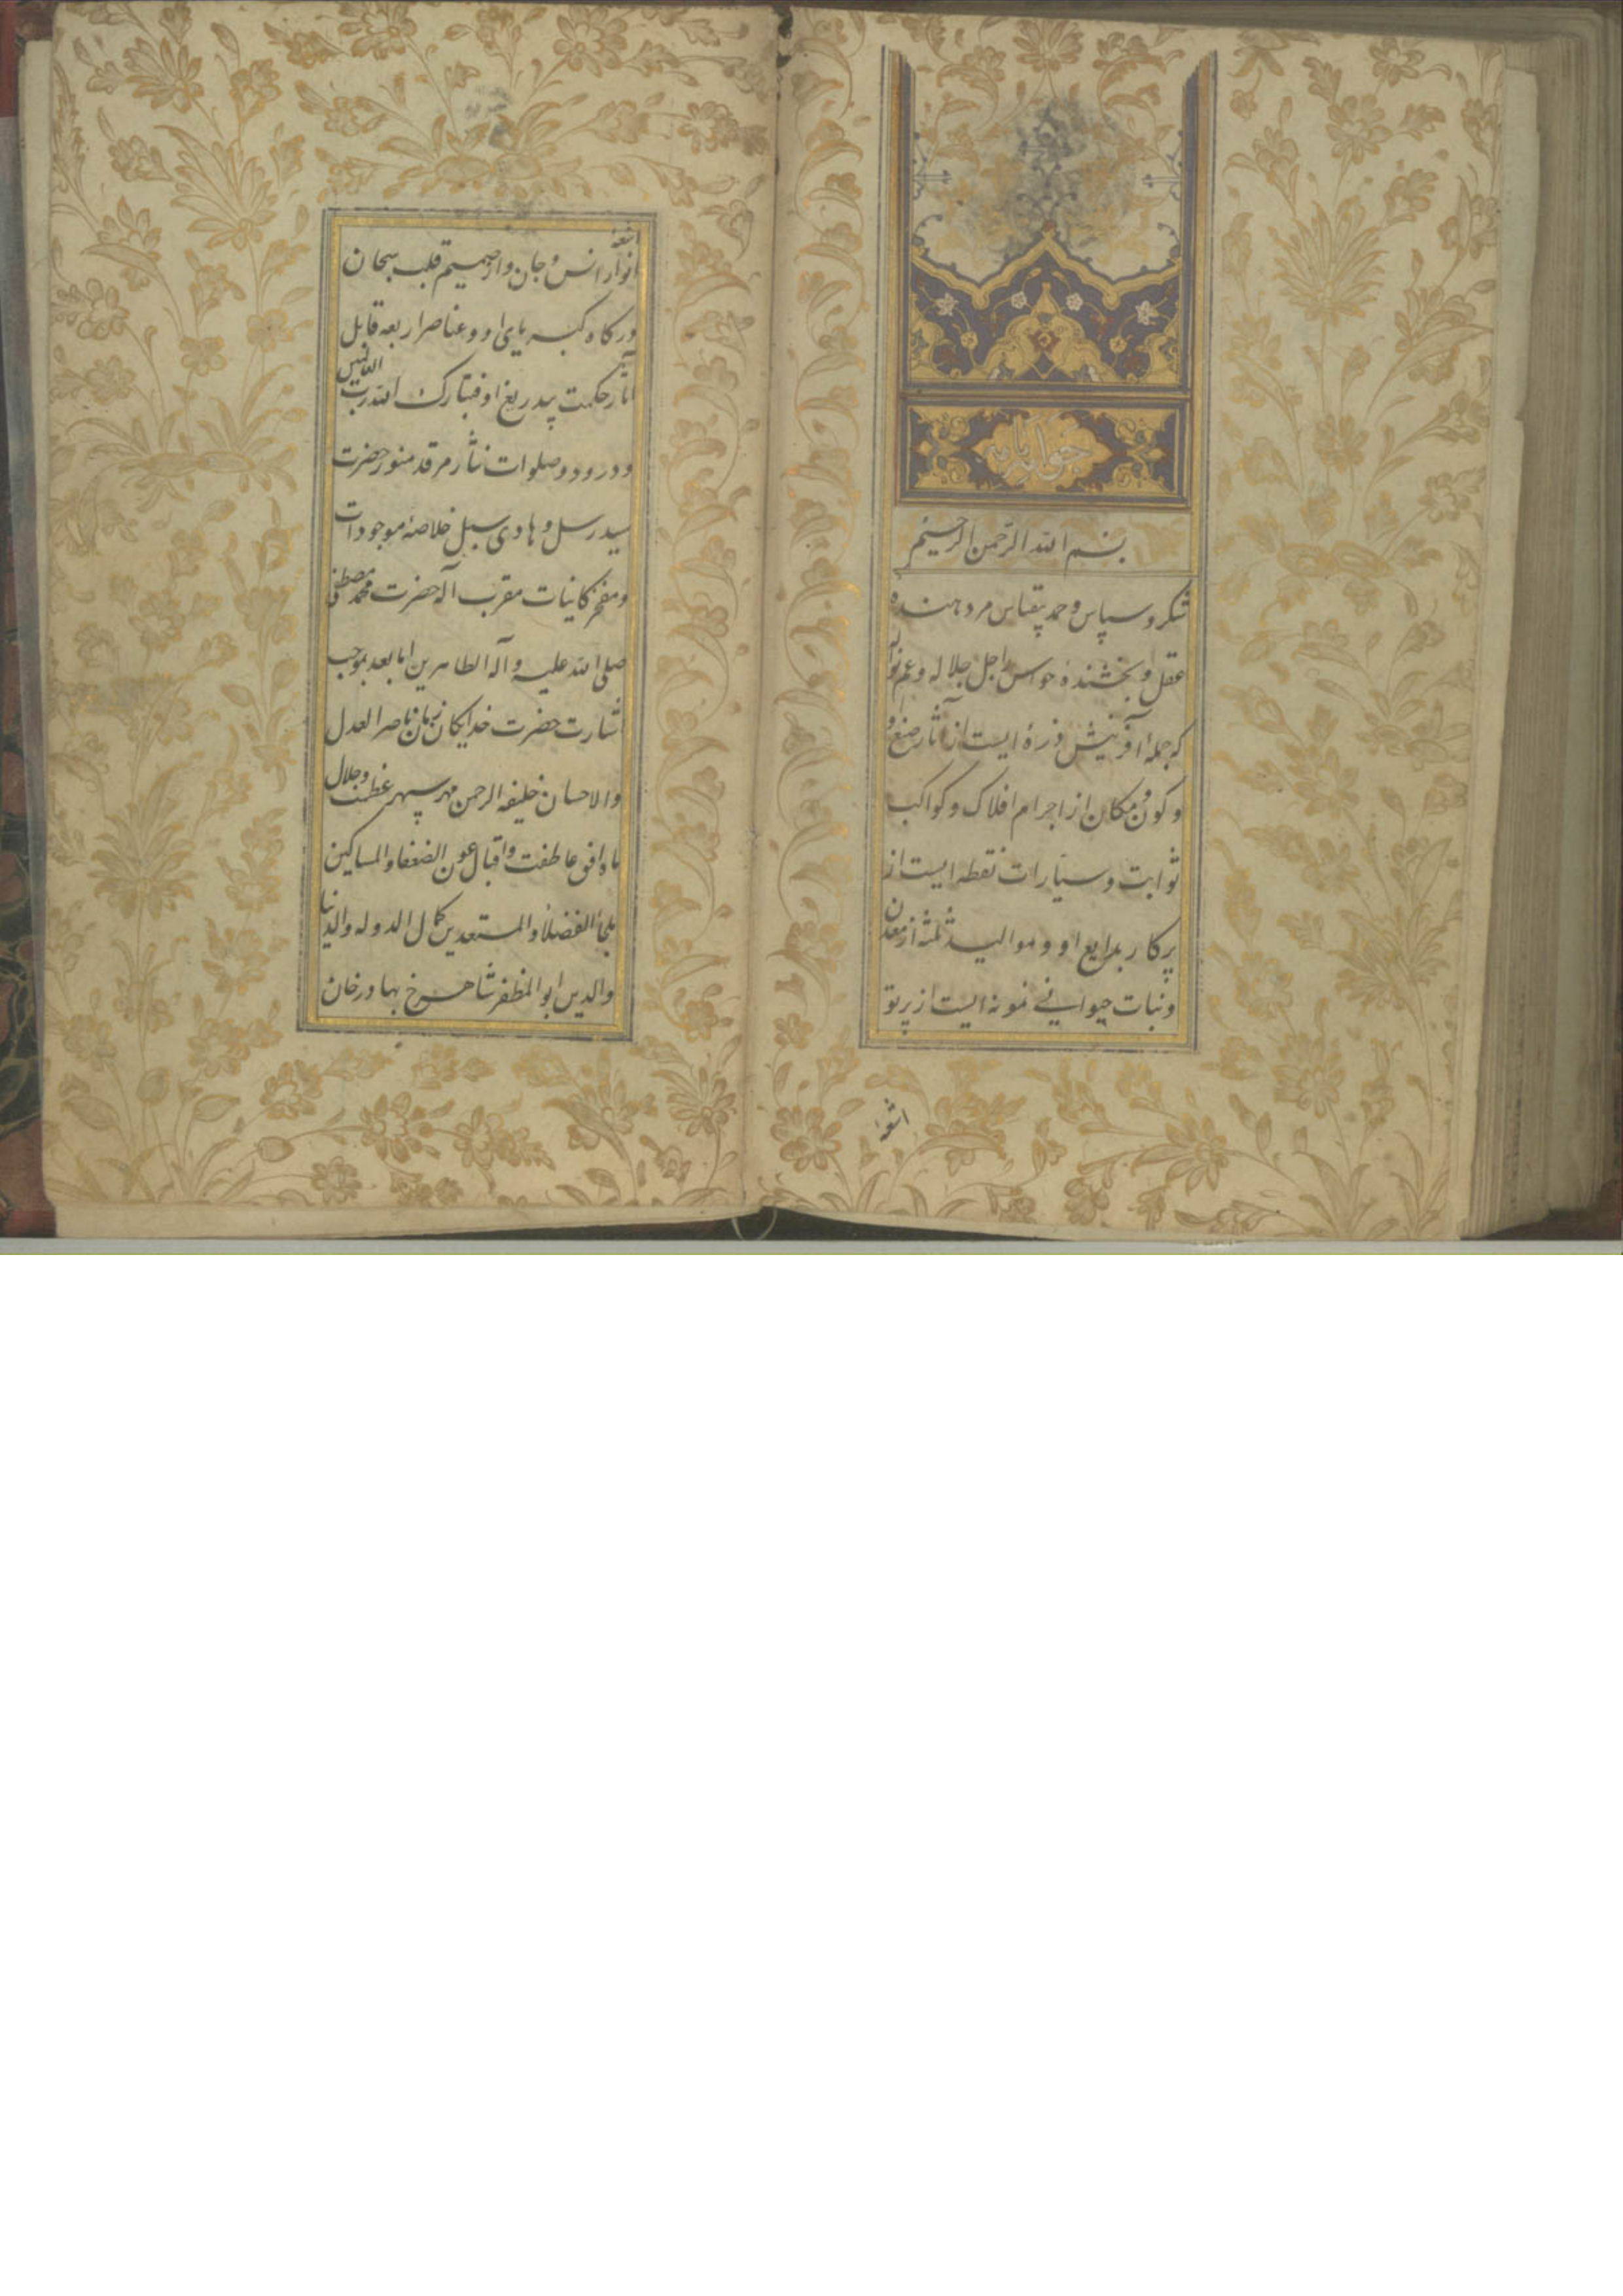 بسم الله الرحمن الرحیم
شکر و سپاس و حمد بیقیاس مر دهنده
عقل و بخشنده حواس را جل جلاله و عم نواله
که جمله آفرینش ذره ایست از آثار صنع او
و کون و مکان از اجرام افلاک و کواکب
ثوابت و سیارات نقطه ایست از
پرکار بدایع او و موالید ثلثه از معدن
و نبات حیوانی نمونه ایست از پرتو
اشعهٔ
اشعهٔ
انوار انس و جان و از صمیم قلب سبحان
درگاه کبریای او و عناصر اربعه قابل
آثار حکمت بیدریغ او فتبارک الله رب العالمین
و درود و صلوات نثار مرقد منور حضرت
سید رسل و هادی سبل خلاصهٔ موجودات
و مفخر کاینات مقرب اله حضرت محمد مصطفی
صلی الله علیه و آله الطاهرین اما بعد بموجب
اشارت حضرت خدایکان زمان ناصر العدل
والاحسان خلیفه الرحمن مهر سپهر عظمت و جلال
ماه افق عاطفت و اقبال عون الضعفا و المساکین
ملجأ الفضلا و المستعدین کمال الدوله والدنیا
والدین ابو المظفر شاهرخ بهادرخان